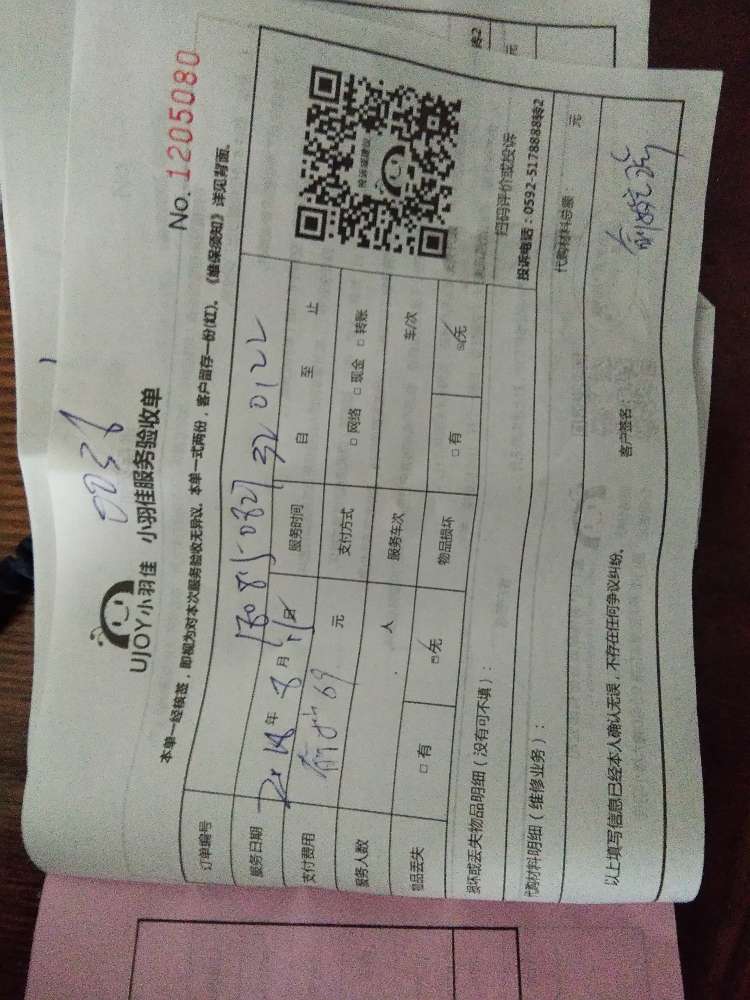 No. 1205080
UJOY小羽佳 小羽佳服务验收单
本单一经核签，即视为对本次服务验收无异议。本单一式两份，客户留存一份(红)。《维保须知》详见背面。
订单编号
服务日期 年 8 月 日 服务时间 自 至 止
支付费用 元 支付方式 □ 网络 □ 现金 □ 转账
服务人数 人 服务车次 车/次
物品丢失 □ 有 ☑无 物品损坏 □ 有 ☑无
投诉或建议
扫码评价或投诉
投诉电话：0592-5178888转2
损坏或丢失物品明细（没有可不填）：
代购材料明细（维修业务）： 代购材料总额： 元
以上填写信息已经本人确认无误，不存在任何争议纠纷。 客户签名：